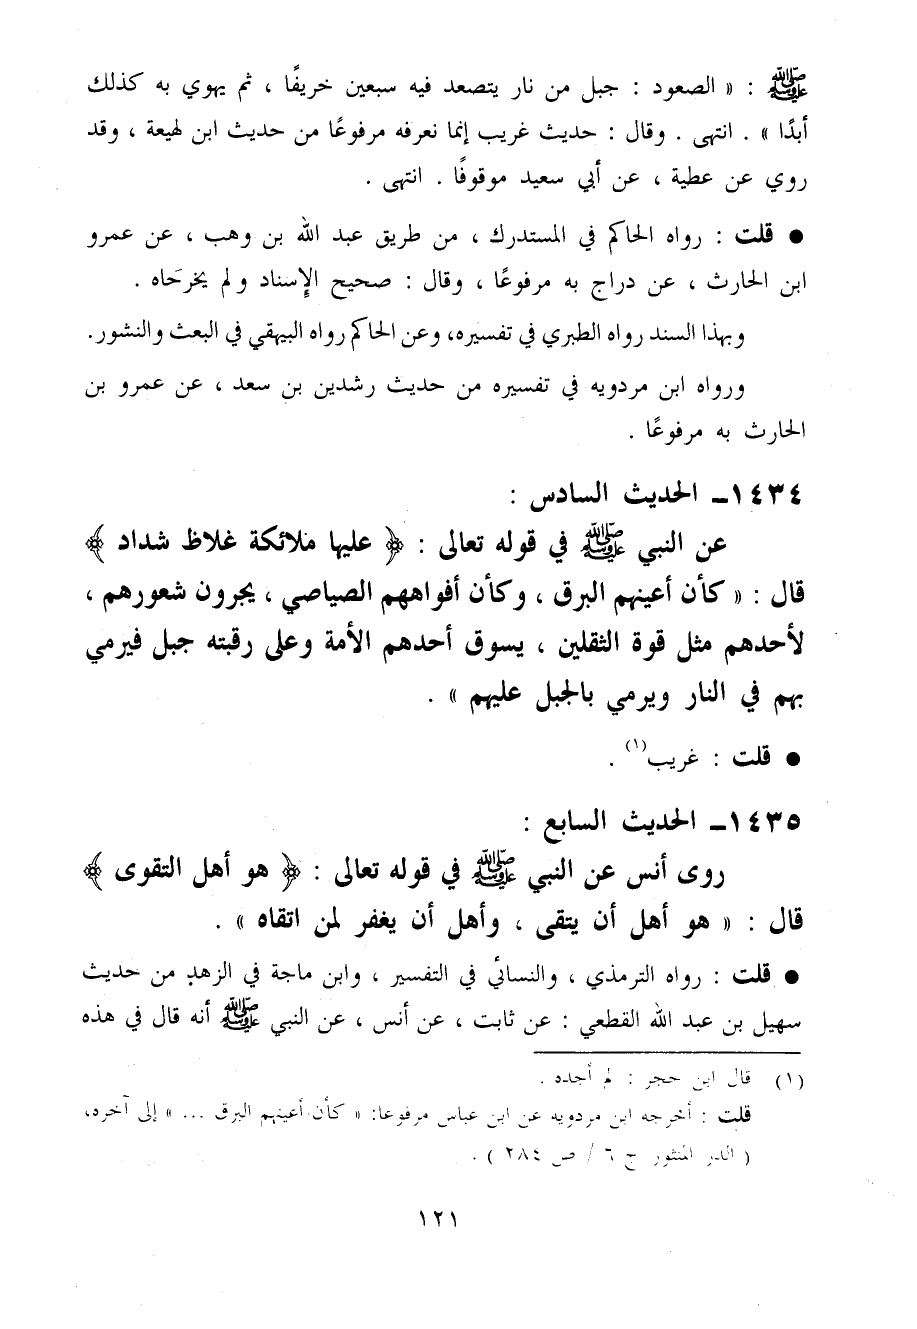 ﷺ : « الصعود : جبل من نار يتصعد فيه سبعين خريفًا ، ثم يهوي به كذلك
أبدًا » . انتهى . وقال : حديث غريب إنما نعرفه مرفوعًا من حديث ابن لهيعة ، وقد
روي عن عطية ، عن أبي سعيد موقوفًا . انتهى .
● قلت : رواه الحاكم في المستدرك ، من طريق عبد الله بن وهب ، عن عمرو
ابن الحارث ، عن دراج به مرفوعًا ، وقال : صحيح الإسناد ولم يخرجَاه .
وبهذا السند رواه الطبري في تفسيره، وعن الحاكم رواه البيهقي في البعث والنشور.
ورواه ابن مردويه في تفسيره من حديث رشدين بن سعد ، عن عمرو بن
الحارث به مرفوعًا .
١٤٣٤- الحديث السادس :
عن النبي ﷺ في قوله تعالى : ﴿ عليها ملائكة غلاظ شداد ﴾
قال : « كأن أعينهم البرق ، وكأن أفواههم الصياصي ، يجرون شعورهم ،
لأحدهم مثل قوة الثقلين ، يسوق أحدهم الأمة وعلى رقبته جبل فيرمي
بهم في النار ويرمي بالجبل عليهم » .
● قلت : غريب(١) .
١٤٣٥- الحديث السابع :
روى أنس عن النبي ﷺ في قوله تعالى : ﴿ هو أهل التقوى ﴾
قال : « هو أهل أن يتقى ، وأهل أن يغفر لمن اتقاه » .
● قلت : رواه الترمذي ، والنسائي في التفسير ، وابن ماجة في الزهد من حديث
سهيل بن عبد الله القطعي : عن ثابت ، عن أنس ، عن النبي ﷺ أنه قال في هذه
(١) قال ابن حجر : لم أجده .
قلت : أخرجه ابن مردويه عن ابن عباس مرفوعا: « كأن أعينهم البرق ... » إلى آخره،
( الدر المنثور ج ٦ / ص ٢٨٤ ) .
١٢١